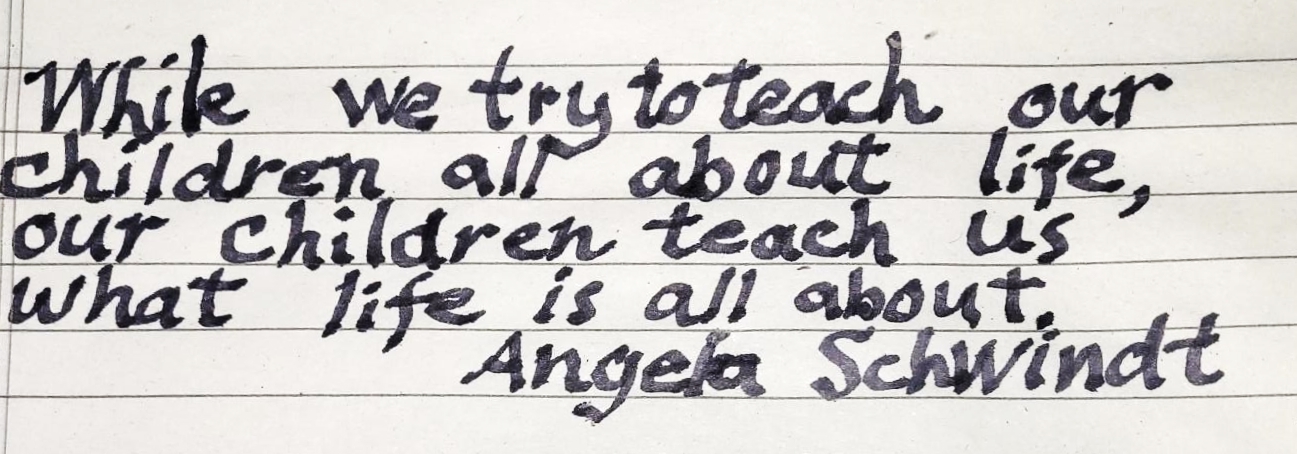 While we try to teach our
children all about life,
our children teach us
what life is all about.
Angela Schwindt